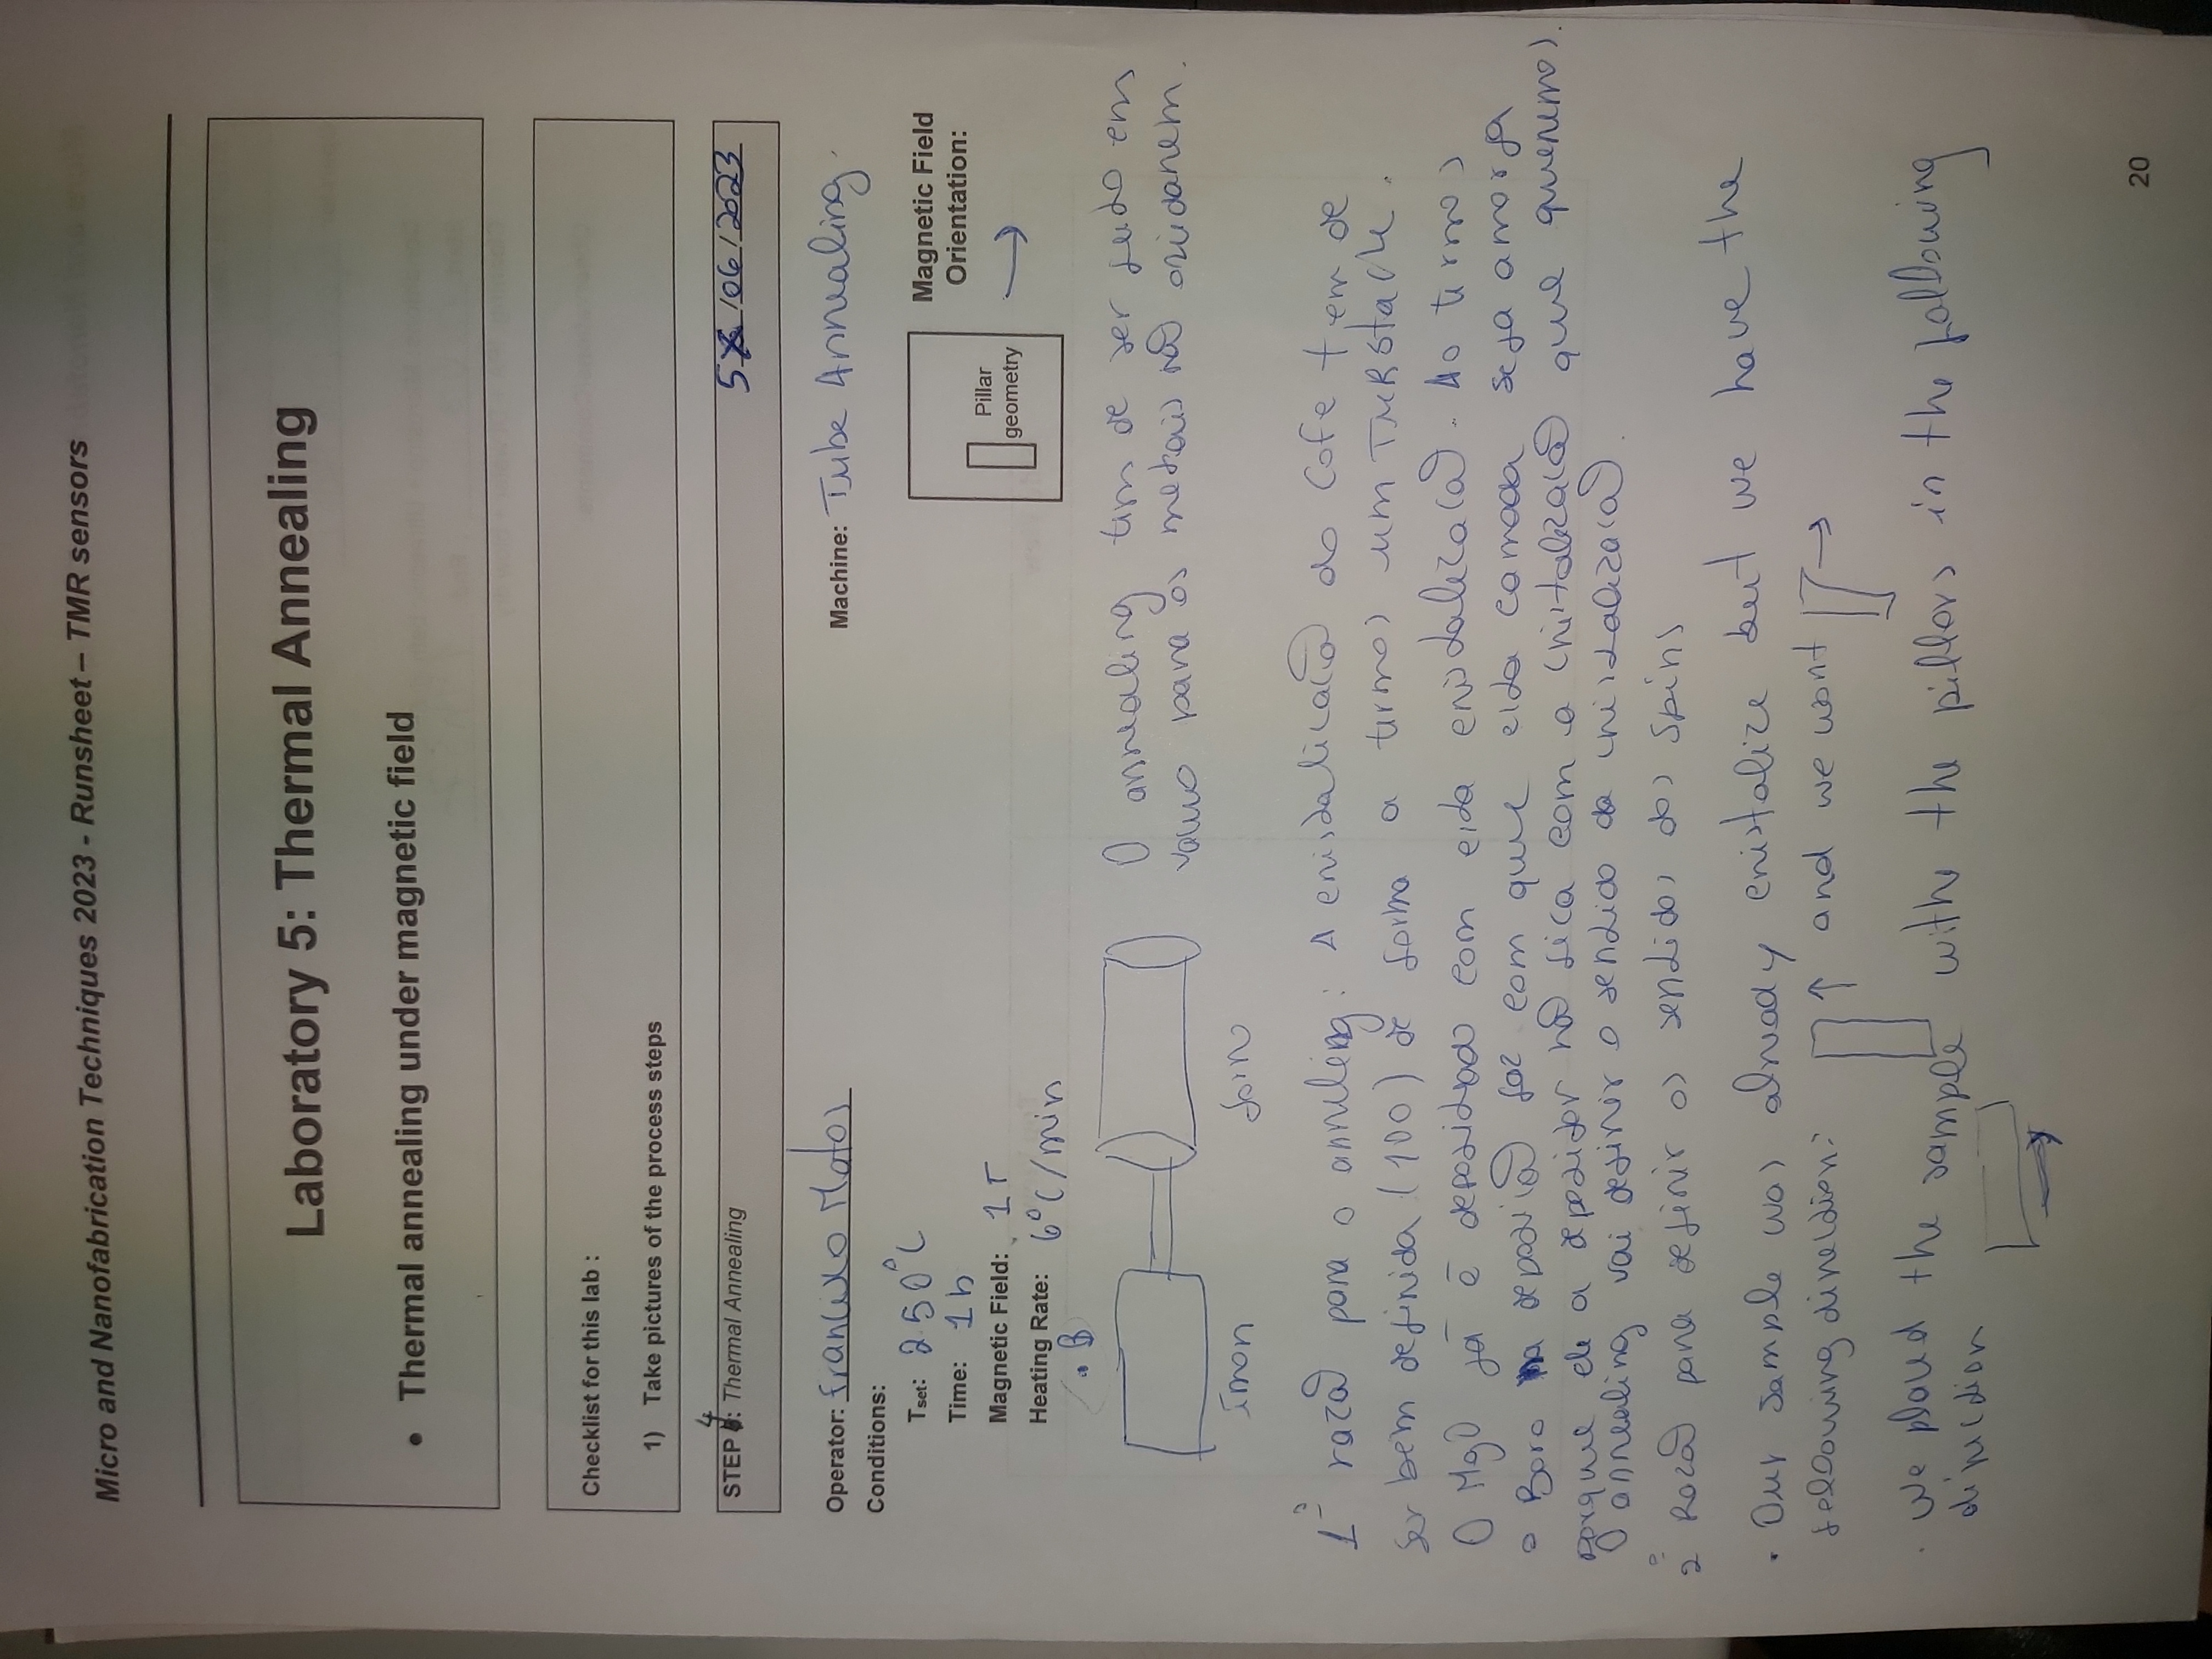 Micro and Nanofabrication Techniques 2023 - Runsheet – TMR sensors
Laboratory 5: Thermal Annealing
• Thermal annealing under magnetic field
Checklist for this lab :
1) Take pictures of the process steps
STEP 4: Thermal Annealing 5 /06/2023
Operator: Francisco Matos Machine: Tube Annealing
Conditions:
Tset: 250°C
Time: 1h
Magnetic Field: 1T
Heating Rate: 6°C/min
Pillar
geometry
Magnetic Field
Orientation:
→
• B
íman
forno
O annealing tem de ser feito em
vacuo para os metais não oxidarem.
1ª razão para o annealing: A cristalicação do CoFe tem de
ser bem definida (100) de forma a termos um TMR stack.
O MgO já é depositado com esta cristalização. Ao termos
o Boro na deposição faz com que esta camada seja amorfa
porque ele a depositar não fica com a cristalização que queremos.
O annealing vai definir o sentido da cristalização.
2ª Razão para definir os sentidos dos spins
• Our sample was already cristalize but we have the
following direction: ↑ and we want →
• We placed the sample withe the pillars in the following
direction
→
20